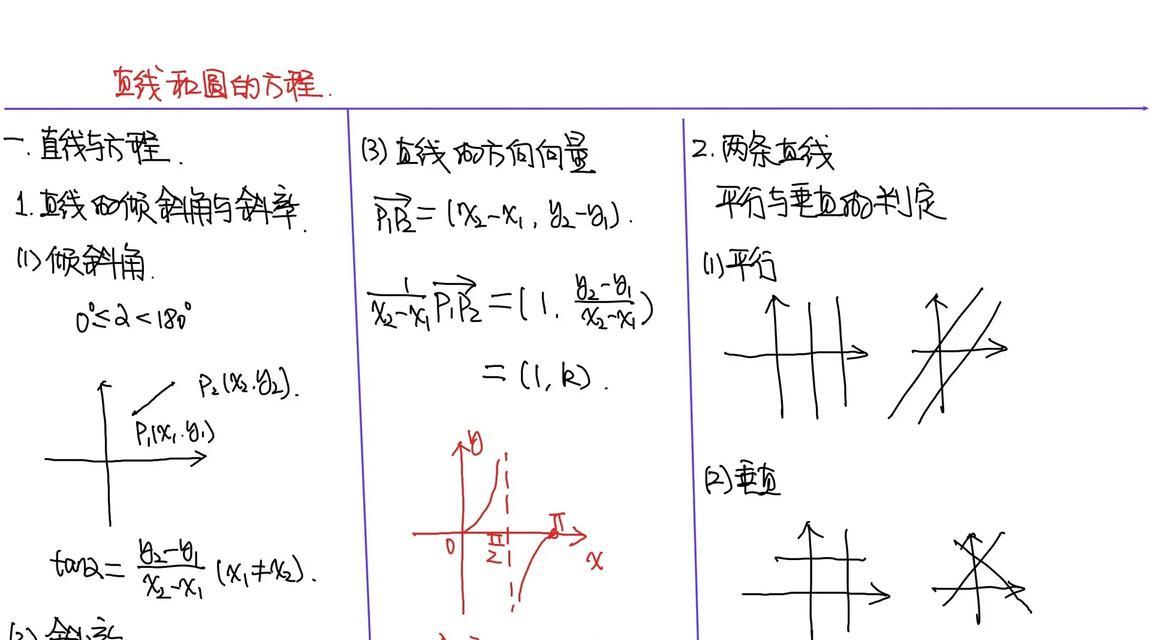 直线和圆的方程.
一.直线与方程.
1.直线的倾斜角与斜率.
(1)倾斜角.
0°≤α<180°
P₂(x₂.y₂).
P₁(x₁.y₁)
tanα=\frac{y₂-y₁}{x₂-x₁}(x₁≠x₂).
(2)斜率
(3)直线的方向向量
\overrightarrow{P₁P₂}=(x₂-x₁,y₂-y₁).
\frac{1}{x₂-x₁}\overrightarrow{P₁P₂}=(1.\frac{y₂-y₁}{x₂-x₁})
=(1,k).
y
0
\frac{π}{2}
π
x
2.两条直线
平行与垂直的判定
(1)平行
(2)垂直